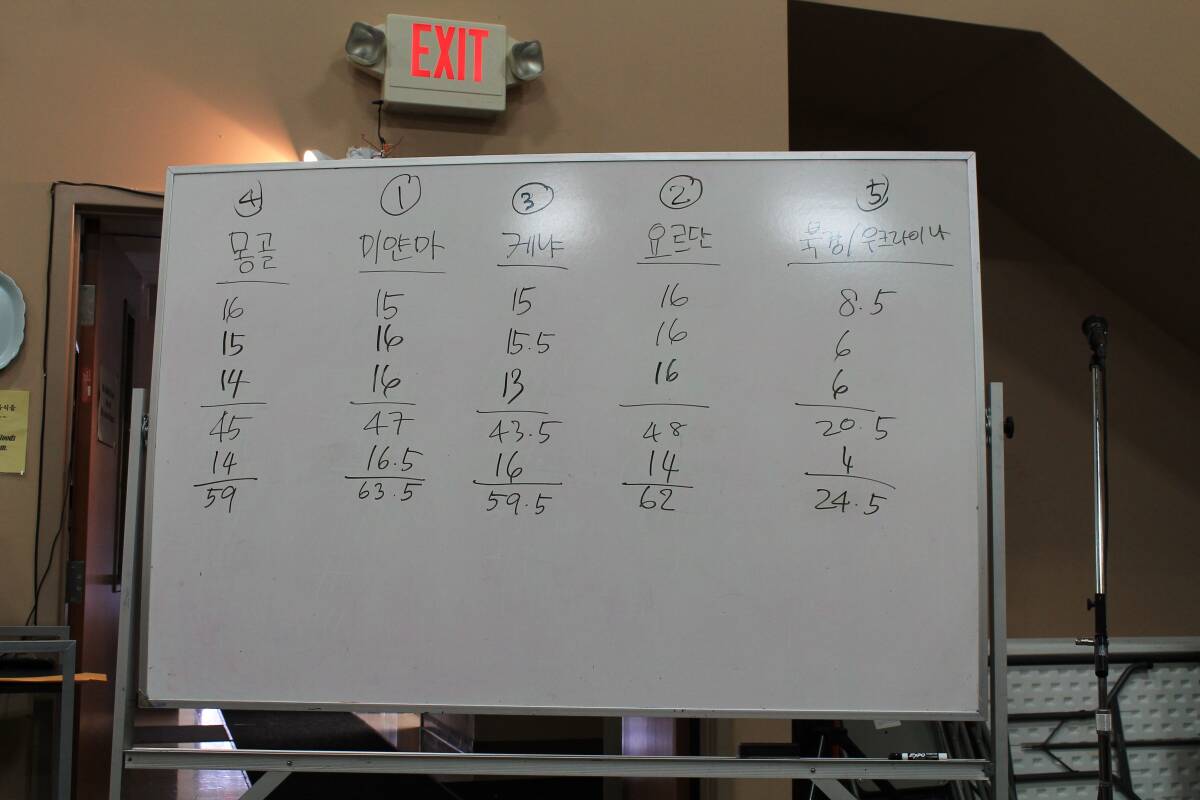 EXIT
④ ① ③ ② ⑤
몽골 미얀마 케냐 요르단 북강/우크라이나
16 15 15 16 8.5
15 16 15.5 16 6
14 16 13 16 6
45 47 43.5 48 20.5
14 16.5 16 14 4
59 63.5 59.5 62 24.5
EXPO